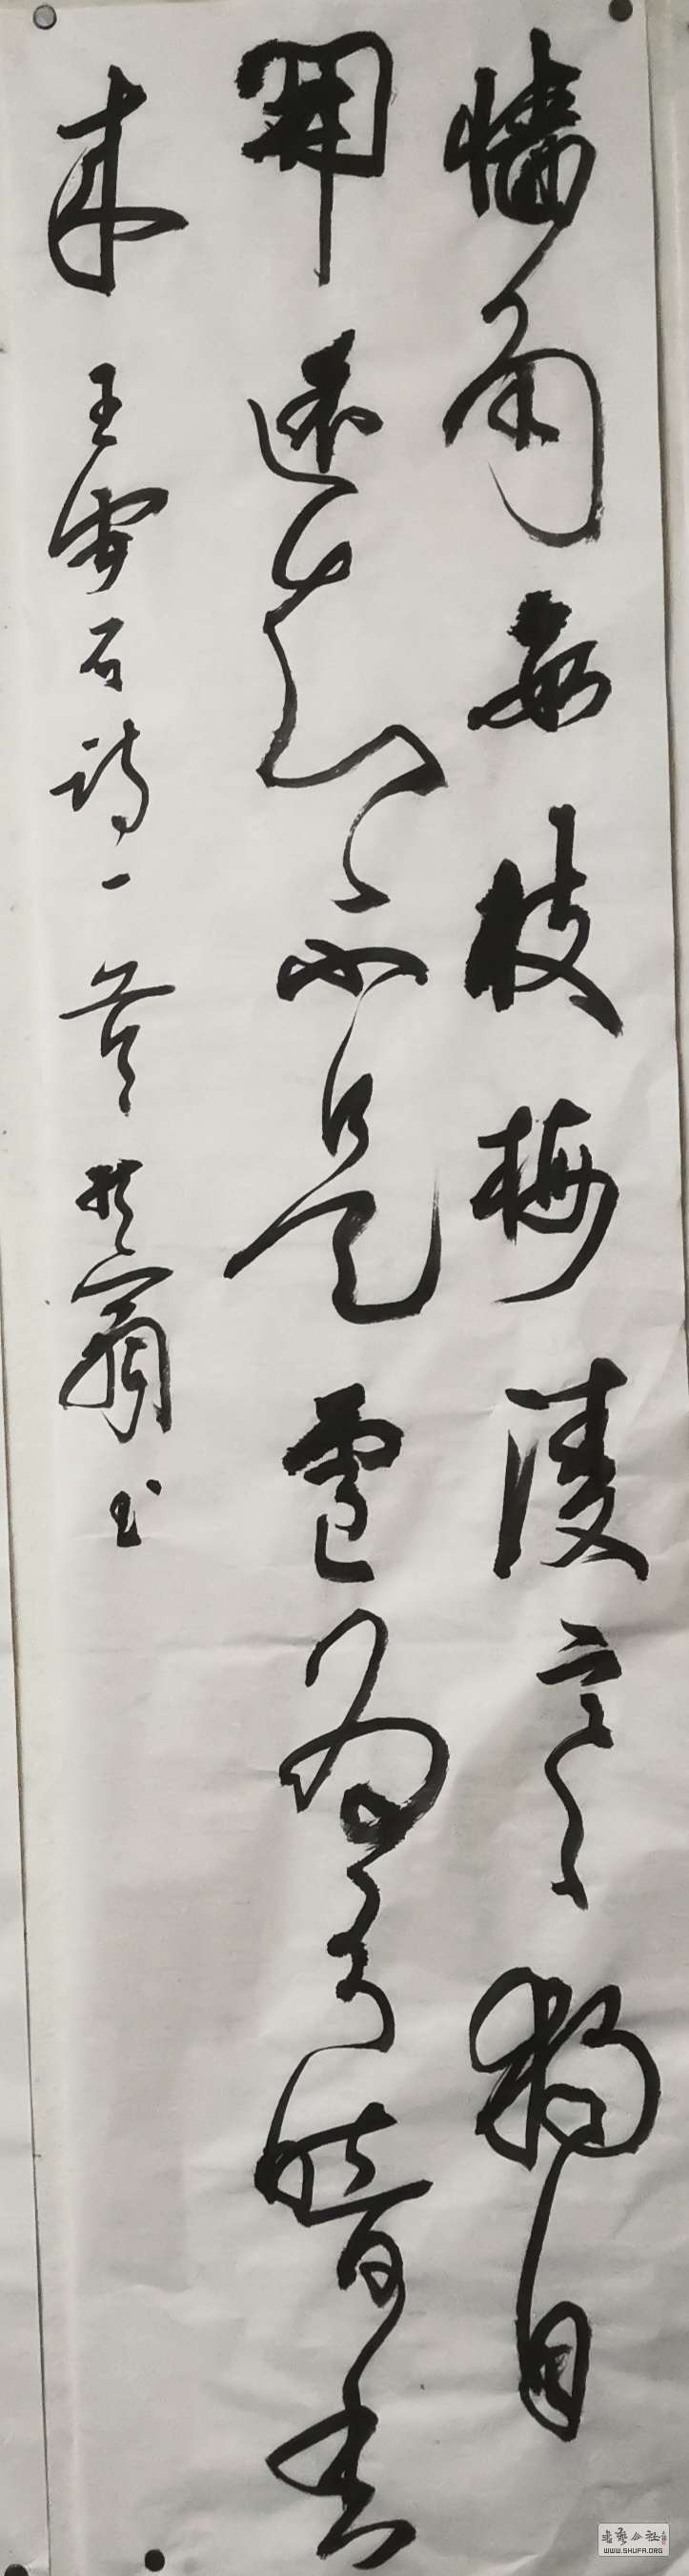 墻角数枝梅凌寒獨自
開遥知不是雪为有暗香
来 王安石詩一首 翁书
书艺公社
WWW.SHUFA.ORG